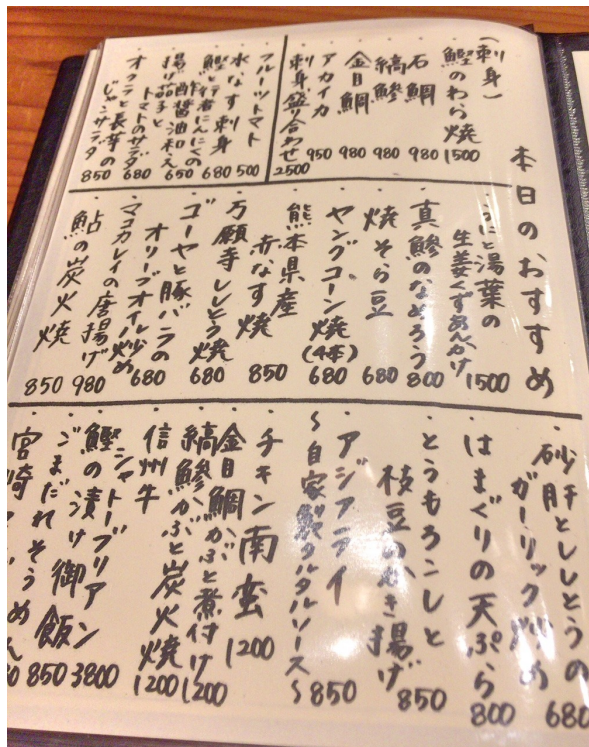 本日のおすすめ
(刺身)
・鰹のわら焼 1500
・石鯛 980
・縞鯵 980
・金目鯛 980
・アカイカ 950
・刺身盛り合わせ 2500
・フルーツトマト 500
・水なす刺身 680
・鰹と行者にんにくの
酢醤油和え 650
・揚げ茄子と
トマトのサラダ 680
・オクラと長芋の
じゃこサラダ 850
・うにと湯葉の
生姜くずあんかけ 1500
・真鯵のなめろう 800
・焼そら豆 680
・ヤングコーン焼(4本) 680
・熊本県産
赤なす焼 850
・万願寺ししとう焼 680
・ゴーヤと豚バラの
オリーブオイル炒め 680
・マコカレイの唐揚げ 980
・鮎の炭火焼 850
・砂肝とししとうの
ガーリック炒め 680
・はまぐりの天ぷら 800
・とうもろこしと
枝豆のかき揚げ 850
・アジフライ
〜自家製タルタルソース〜 850
・チキン南蛮 1200
・金目鯛かぶと煮付け 1200
・縞鯵かぶと炭火焼 1200
・信州牛
シャトーブリアン 3800
・鰹の漬け御飯 850
・ごまだれそうめん
宮崎